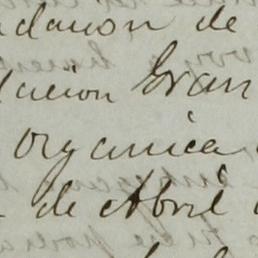 ndacion de
dacion Gran
organica
de Abril